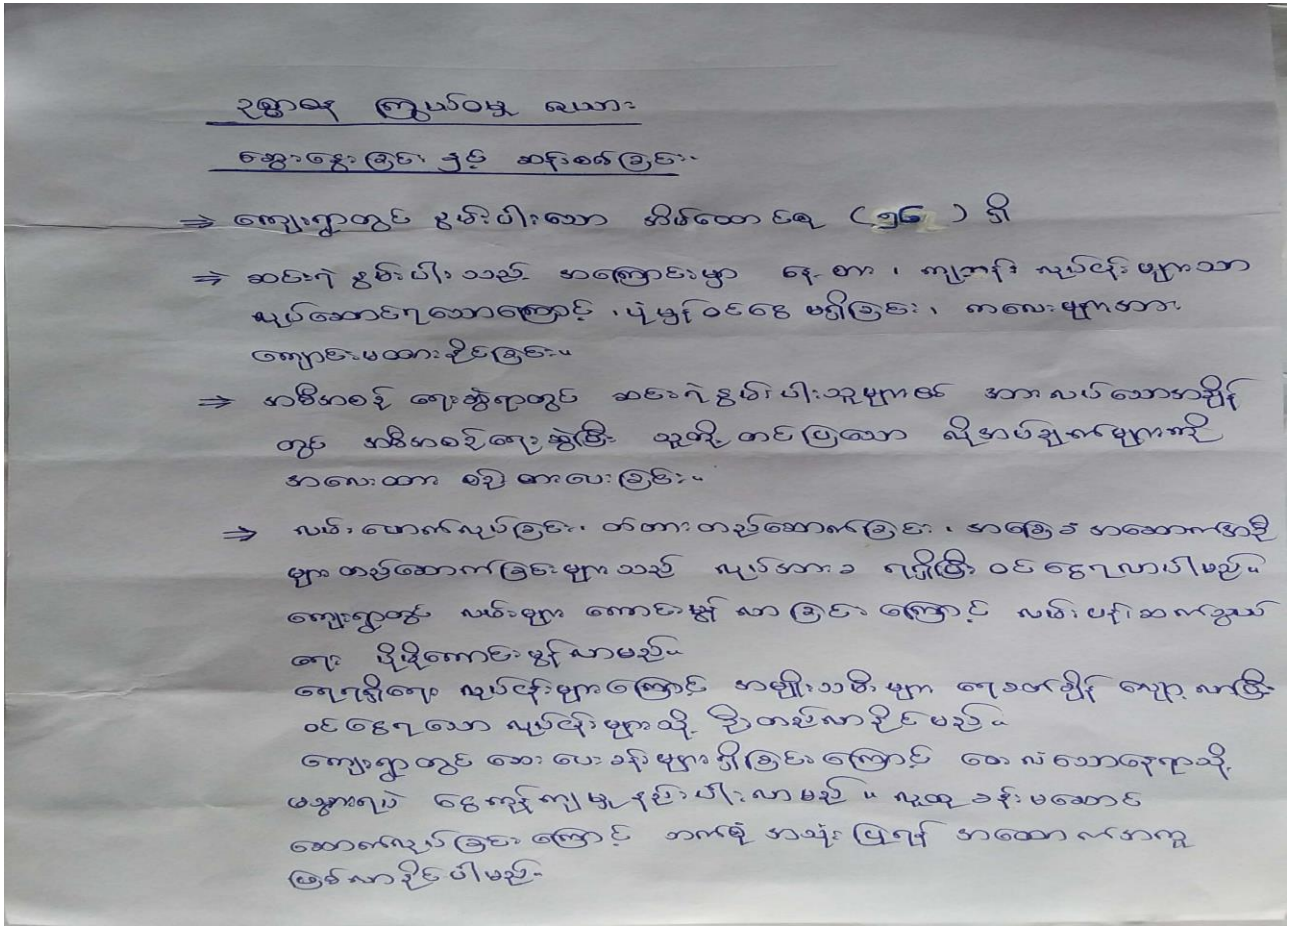 ဥစ္စာဓန ကြွယ်ဝမှု လေ့လာ
ဆွေးနွေးခြင်း နှင့် ဆန်းစစ်ခြင်း။
⇒ ကျေးရွာတွင် နွမ်းပါးသော အိမ်ထောင်စု (၅၆) ရှိ
⇒ ဆင်းရဲနွမ်းပါးသည့် အကြောင်းမှာ နေ့စား၊ ကျဘန်း လုပ်ငန်းများသာ
လုပ်ဆောင်ရသောကြောင့်၊ ပုံမှန်ဝင်ငွေ မရှိခြင်း၊ ကလေးများအား
ကျောင်းမထားနိုင်ခြင်း။
⇒ အစီအစဉ် ရေးဆွဲရာတွင် ဆင်းရဲနွမ်းပါးသူများ၏ အားလပ်သောအချိန်
တွင် အစီအစဉ်ရေးဆွဲပြီး သူတို့ တင်ပြသော လိုအပ်ချက်များကို
အလေးထား စဉ်းစားပေးခြင်း။
⇒ လမ်းဖောက်လုပ်ခြင်း၊ တံတားတည်ဆောက်ခြင်း၊ အခြေခံ အဆောက်အဦ
များ တည်ဆောက်ခြင်းများသည် လုပ်အားခ ရရှိပြီး ဝင်ငွေရလာပါမည်။
ကျေးရွာတွင် လမ်းများ ကောင်းမွန်လာခြင်းကြောင့် လမ်းပန်းဆက်သွယ်
ရေး ပိုမိုကောင်းမွန်လာမည်။
ရေရရှိရေး လုပ်ငန်းများကြောင့် အမျိုးသမီးများ ရေခတ်ချိန် လျော့လာပြီး
ဝင်ငွေရသော လုပ်ငန်းများသို့ ဦးတည်လာနိုင်မည်။
ကျေးရွာတွင် ဆေးပေးခန်းများရှိခြင်းကြောင့် ဝေးလံသောနေရာသို့
မသွားရပဲ ငွေကုန်ကျမှု နည်းပါးလာမည်။ လူထုခန်းမဆောင်
ဆောက်လုပ်ခြင်းကြောင့် ဘက်စုံ အသုံးပြုရန် အထောက်အကူ
ဖြစ်လာနိုင်ပါမည်။